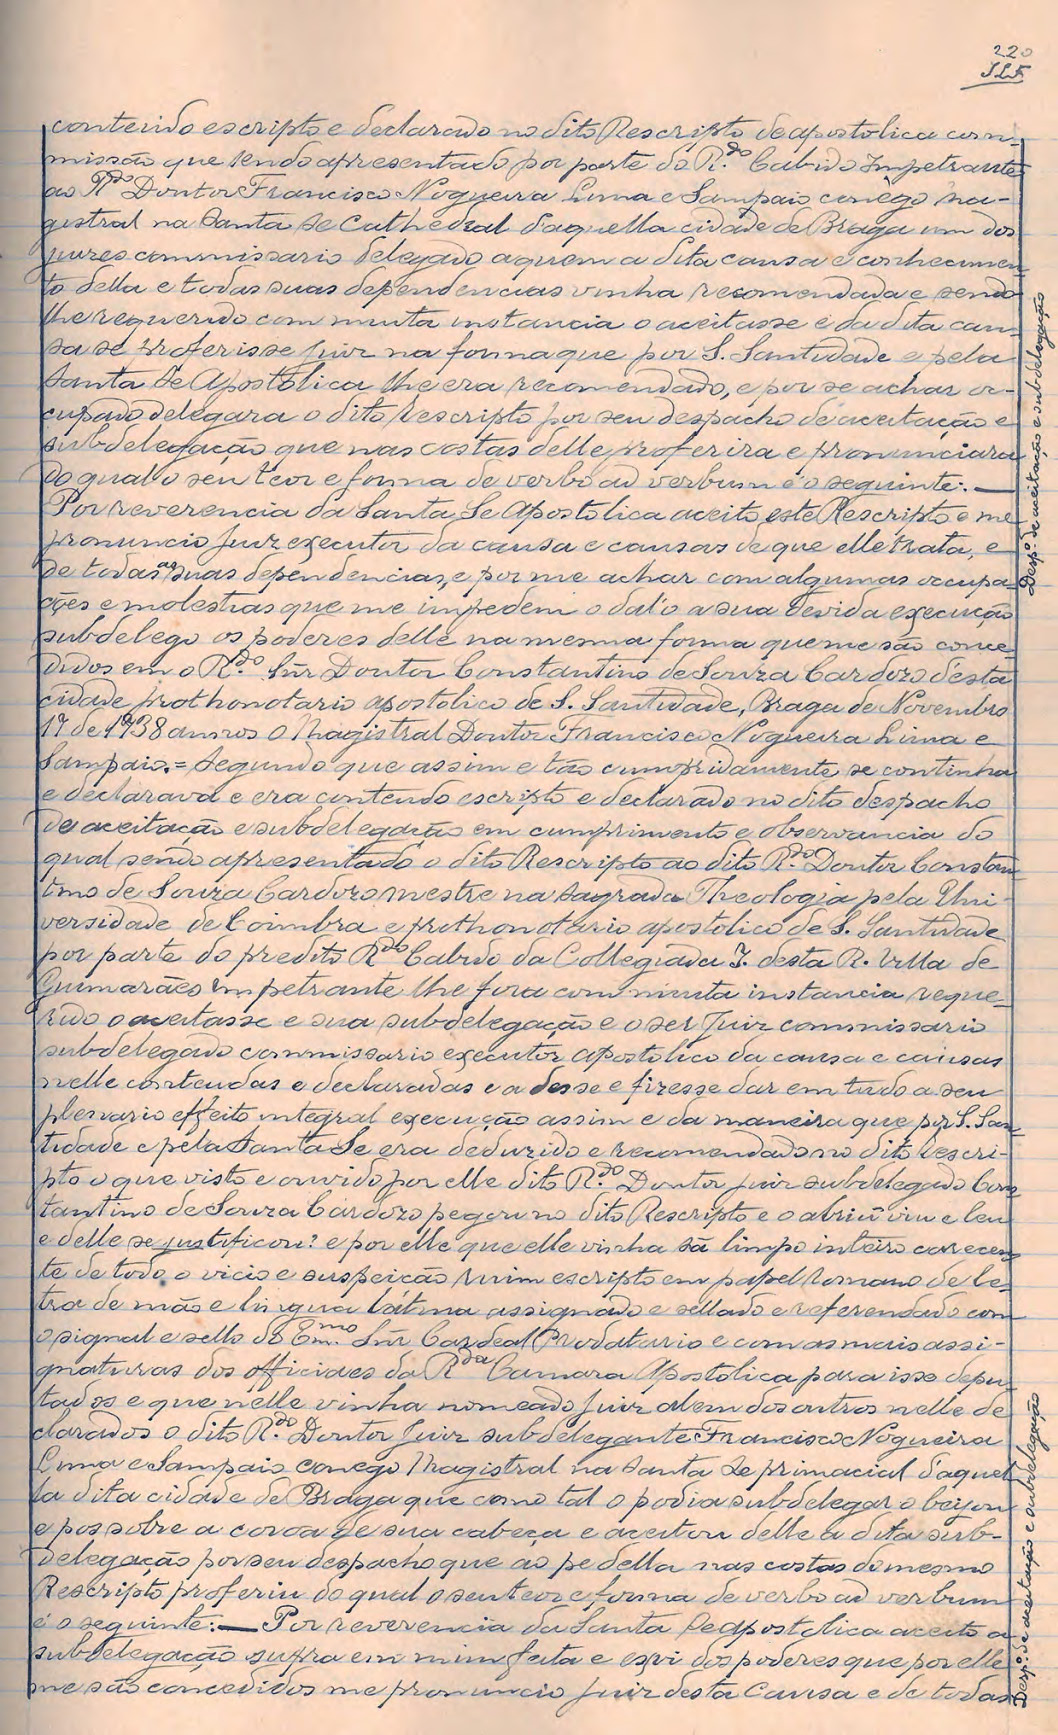 220
JLF
conteudo escripto e declarado no dito Rescripto de apostolica com-
missão que sendo apresentado por parte do R.do Cabido Impetrante
ao R.do Doutor Francisco Nogueira Lima e Sampaio conego ma-
gistral na Santa Se Cathedral d'aquella cidade de Braga um dos
juizes commissario delegado a quem a dita causa e conhecimen-
to della e todas suas dependencias vinha recomendada e sendo
lhe requerido com muita instancia o aceitasse e da dita cau-
sa se proferisse juiz na forma que por S. Santidade e pela
Santa Se Apostolica lhe era recomendado, e por se achar oc-
cupado delegara o dito rescripto por seu despacho de aceitação e
subdelegação que nas costas delle proferira e pronunciara
do qual o seu teor e forma de verbo ad verbum é o seguinte: —
Por reverencia da Santa Se Apostolica aceito este Rescripto e me
pronuncio Juiz executor da causa e causas de que elle trata, e
de todas as suas dependencias, e por me achar com algumas occupa-
ções e molestias que me impedem o dal'o a sua devida execução
subdelego os poderes delle na mesma forma que me são conce-
didos em o R.do Snr Doutor Constantino de Souza Cardozo d'esta
cidade prothonotario apostolico de S. Santidade, Braga de Novembro
17 de 1738 annos O Magistral Doutor Francisco Nogueira Lima e
Sampaio. = Segundo que assim e tão cumpridamente se continha
e declarava e era conteudo escripto e declarado no dito despacho
de aceitação e subdelegação em cumprimento e observancia do
qual sendo apresentado o dito Rescripto ao dito R.do Doutor Constan-
tino de Souza Cardozo mestre na Sagrada Theologia pela Uni-
versidade de Coimbra e prothonotario apostolico de S. Santidade
por parte do predito R.do Cabido da Collegiada I. desta R. Villa de
Guimarães impetrante lhe fora com muita instancia reque-
rido o aceitasse e sua subdelegação e o ser Juiz commissario
subdelegado commissario executor apostolico da causa e causas
nelle contendas e declaradas e a desse e fizesse dar em tudo a seu
plenario effeito integral execução assim e da maneira que por S. San-
tidade e pela Santa Se era deduzido e recomendado no dito rescri-
pto o que visto e ouvido por elle dito R.do Doutor juiz subdelegado Cons-
tantino de Souza Cardozo pegou no dito Rescripto e o abriu viu e leu
e delle se justificou? e por elle que elle vinha sã limpo inteiro carecen-
te de todo o vicio e suspeição ruim escripto em papel romano de le-
tra de mão e lingua látina assignado e sellado e referendado com
o signal e sello do Em.mo Snr Cardeal Prodatario e com as mais assi-
gnaturas dos officiaes da R.da Camara Apostolica para isso depu-
tados e que nelle vinha nomeado Juiz alem dos outros nelle de
clarados o dito R.do Doutor Juiz subdelegante Francisco Nogueira
Lima e Sampaio conego Magistral na Santa Se primacial d'aquel-
la dita cidade de Braga que como tal o podia subdelegar o beijou
e pos sobre a coroa de sua cabeça e aceitou delle a dita sub-
delegação por seu despacho que ao pe della nas costas do mesmo
Rescripto proferiu do qual o seu teor e forma de verbo ad verbum
é o seguinte: — Por reverencia da Santa Se apostolica aceito a
subdelegação supra em mim feita e dos poderes que por elle
me são concedidos me pronuncio Juiz desta Causa e de todas
Desp.º de aceitação e subdelegação
Desp.º de aceitação e subdelegação